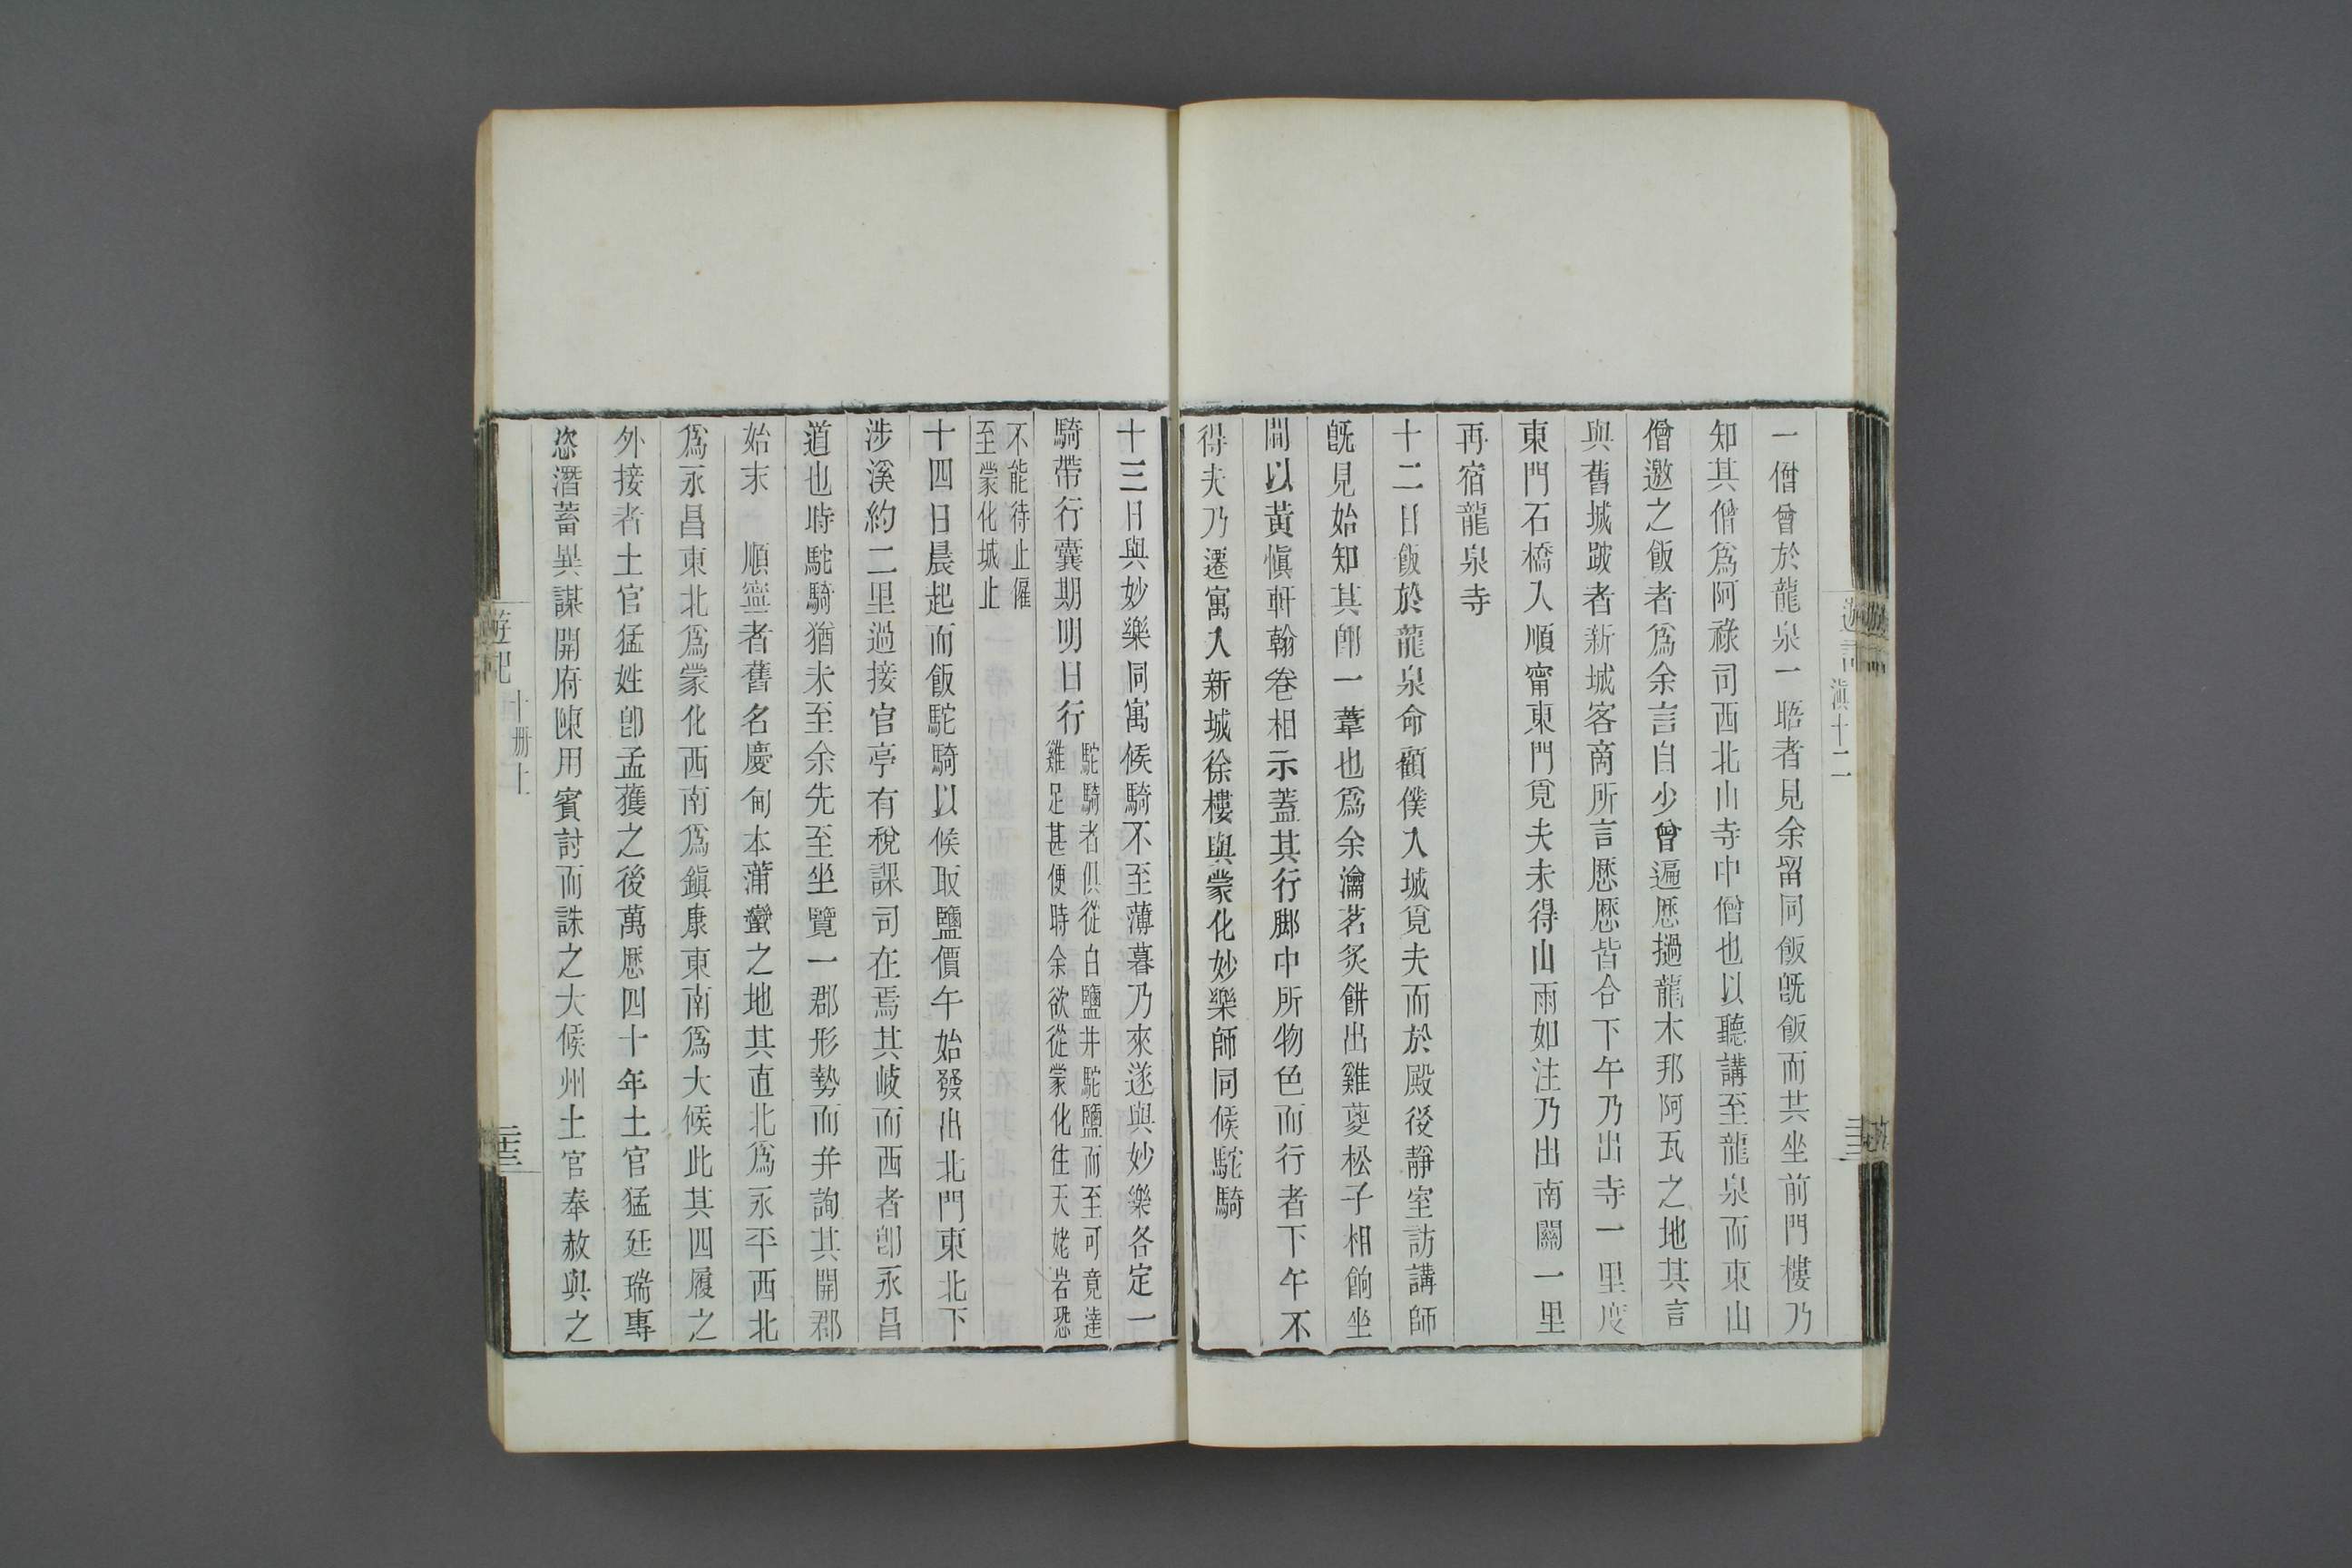 一僧曾於龍泉一晤者見余留同飯旣飯而共坐前門樓乃
知其僧爲阿祿司西北山寺中僧也以聽講至龍泉而東山
僧邀之飯者爲余言自少曾遍歷撾龍木邦阿瓦之地其言
與舊城跛者新城客商所言歷歷皆合下午乃出寺一里度
東門石橋入順甯東門覓夫未得山雨如注乃出南關一里
再宿龍泉寺
十二日飯於龍泉命顧僕入城覓夫而於殿後靜室訪講師
旣見始知其卽一葦也爲余瀹茗炙餅出雞葼松子相餉坐
間以黃愼軒翰卷相示蓋其行脚中所物色而行者下午不
得夫乃遷寓入新城徐樓與蒙化妙樂師同候駝騎
十三日與妙樂同寓候騎不至薄暮乃來遂與妙樂各定一
騎帶行囊期明日行駝騎者俱從白鹽井駝鹽而至可竟達
雞足甚便時余欲從蒙化往天姥岩恐
不能待止僱
至蒙化城止
十四日晨起而飯駝騎以候取鹽價午始發出北門東北下
涉溪約二里過接官亭有稅課司在焉其岐而西者卽永昌
道也時駝騎猶未至余先至坐覽一郡形勢而并詢其開郡
始末 順寧者舊名慶甸本蒲蠻之地其直北爲永平西北
爲永昌東北爲蒙化西南爲鎮康東南爲大候此其四履之
外接者土官猛姓卽孟獲之後萬歷四十年土官猛廷瑞專
恣潛蓄異謀開府陳用賓討而誅之大候州土官奉赦與之
遊記
十册上
滇十二